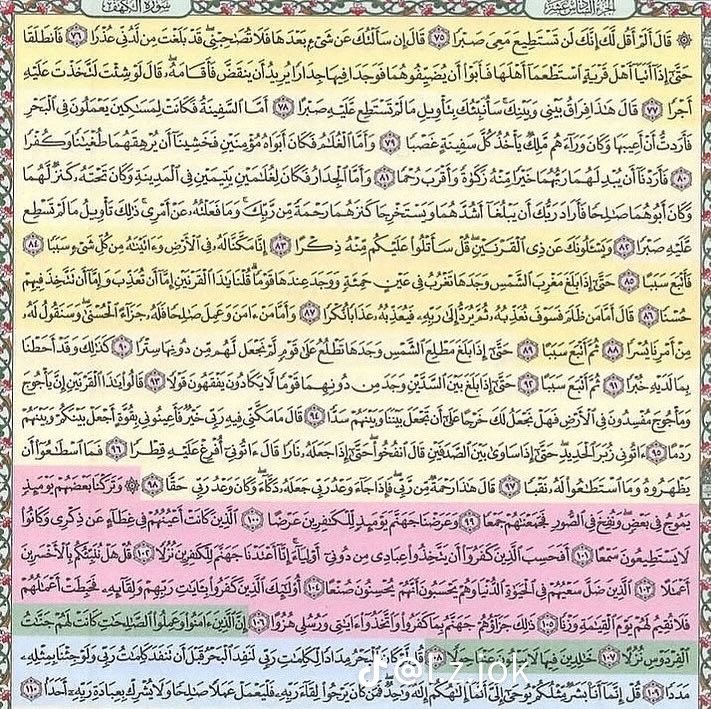 الجزء السادس عشر
سورة الكهف
۞ قَالَ أَلَمْ أَقُل لَّكَ إِنَّكَ لَن تَسْتَطِيعَ مَعِيَ صَبْرًا ٧٥ قَالَ إِن سَأَلْتُكَ عَن شَيْءٍ بَعْدَهَا فَلَا تُصَاحِبْنِي قَدْ بَلَغْتَ مِن لَّدُنِّي عُذْرًا ٧٦ فَانطَلَقَا
حَتَّىٰ إِذَا أَتَيَا أَهْلَ قَرْيَةٍ اسْتَطْعَمَا أَهْلَهَا فَأَبَوْا أَن يُضَيِّفُوهُمَا فَوَجَدَا فِيهَا جِدَارًا يُرِيدُ أَن يَنقَضَّ فَأَقَامَهُ قَالَ لَوْ شِئْتَ لَتَّخَذْتَ عَلَيْهِ
أَجْرًا ٧٧ قَالَ هَٰذَا فِرَاقُ بَيْنِي وَبَيْنِكَ سَأُنَبِّئُكَ بِتَأْوِيلِ مَا لَمْ تَسْتَطِع عَّلَيْهِ صَبْرًا ٧٨ أَمَّا السَّفِينَةُ فَكَانَتْ لِمَسَاكِينَ يَعْمَلُونَ فِي الْبَحْرِ
فَأَرَدتُّ أَنْ أَعِيبَهَا وَكَانَ وَرَاءَهُم مَّلِكٌ يَأْخُذُ كُلَّ سَفِينَةٍ غَصْبًا ٧٩ وَأَمَّا الْغُلَامُ فَكَانَ أَبَوَاهُ مُؤْمِنَيْنِ فَخَشِينَا أَن يُرْهِقَهُمَا طُغْيَانًا وَكُفْرًا
٨٠ فَأَرَدْنَا أَن يُبْدِلَهُمَا رَبُّهُمَا خَيْرًا مِّنْهُ زَكَاةً وَأَقْرَبَ رُحْمًا ٨١ وَأَمَّا الْجِدَارُ فَكَانَ لِغُلَامَيْنِ يَتِيمَيْنِ فِي الْمَدِينَةِ وَكَانَ تَحْتَهُ كَنزٌ لَّهُمَا
وَكَانَ أَبُوهُمَا صَالِحًا فَأَرَادَ رَبُّكَ أَن يَبْلُغَا أَشُدَّهُمَا وَيَسْتَخْرِجَا كَنزَهُمَا رَحْمَةً مِّن رَّبِّكَ وَمَا فَعَلْتُهُ عَنْ أَمْرِي ذَٰلِكَ تَأْوِيلُ مَا لَمْ تَسْطِع
عَّلَيْهِ صَبْرًا ٨٢ وَيَسْأَلُونَكَ عَن ذِي الْقَرْنَيْنِ قُلْ سَأَتْلُو عَلَيْكُم مِّنْهُ ذِكْرًا ٨٣ إِنَّا مَكَّنَّا لَهُ فِي الْأَرْضِ وَآتَيْنَاهُ مِن كُلِّ شَيْءٍ سَبَبًا ٨٤
فَأَتْبَعَ سَبَبًا ٨٥ حَتَّىٰ إِذَا بَلَغَ مَغْرِبَ الشَّمْسِ وَجَدَهَا تَغْرُبُ فِي عَيْنٍ حَمِئَةٍ وَوَجَدَ عِندَهَا قَوْمًا قُلْنَا يَا ذَا الْقَرْنَيْنِ إِمَّا أَن تُعَذِّبَ وَإِمَّا أَن تَتَّخِذَ فِيهِمْ
حُسْنًا ٨٦ قَالَ أَمَّا مَن ظَلَمَ فَسَوْفَ نُعَذِّبُهُ ثُمَّ يُرَدُّ إِلَىٰ رَبِّهِ فَيُعَذِّبُهُ عَذَابًا نُّكْرًا ٨٧ وَأَمَّا مَنْ آمَنَ وَعَمِلَ صَالِحًا فَلَهُ جَزَاءً الْحُسْنَىٰ وَسَنَقُولُ لَهُ
مِنْ أَمْرِنَا يُسْرًا ٨٨ ثُمَّ أَتْبَعَ سَبَبًا ٨٩ حَتَّىٰ إِذَا بَلَغَ مَطْلِعَ الشَّمْسِ وَجَدَهَا تَطْلُعُ عَلَىٰ قَوْمٍ لَّمْ نَجْعَل لَّهُم مِّن دُونِهَا سِتْرًا ٩٠ كَذَٰلِكَ وَقَدْ أَحَطْنَا
بِمَا لَدَيْهِ خُبْرًا ٩١ ثُمَّ أَتْبَعَ سَبَبًا ٩٢ حَتَّىٰ إِذَا بَلَغَ بَيْنَ السَّدَّيْنِ وَجَدَ مِن دُونِهِمَا قَوْمًا لَّا يَكَادُونَ يَفْقَهُونَ قَوْلًا ٩٣ قَالُوا يَا ذَا الْقَرْنَيْنِ إِنَّ يَأْجُوجَ
وَمَأْجُوجَ مُفْسِدُونَ فِي الْأَرْضِ فَهَلْ نَجْعَلُ لَكَ خَرْجًا عَلَىٰ أَن تَجْعَلَ بَيْنَنَا وَبَيْنَهُمْ سَدًّا ٩٤ قَالَ مَا مَكَّنِّي فِيهِ رَبِّي خَيْرٌ فَأَعِينُونِي بِقُوَّةٍ أَجْعَلْ بَيْنَكُمْ وَبَيْنَهُمْ
رَدْمًا ٩٥ آتُونِي زُبَرَ الْحَدِيدِ حَتَّىٰ إِذَا سَاوَىٰ بَيْنَ الصَّدَفَيْنِ قَالَ انفُخُوا حَتَّىٰ إِذَا جَعَلَهُ نَارًا قَالَ آتُونِي أُفْرِغْ عَلَيْهِ قِطْرًا ٩٦ فَمَا اسْطَاعُوا أَن
يَظْهَرُوهُ وَمَا اسْتَطَاعُوا لَهُ نَقْبًا ٩٧ قَالَ هَٰذَا رَحْمَةٌ مِّن رَّبِّي فَإِذَا جَاءَ وَعْدُ رَبِّي جَعَلَهُ دَكَّاءَ وَكَانَ وَعْدُ رَبِّي حَقًّا ٩٨ ۞ وَتَرَكْنَا بَعْضَهُمْ يَوْمَئِذٍ
يَمُوجُ فِي بَعْضٍ وَنُفِخَ فِي الصُّورِ فَجَمَعْنَاهُمْ جَمْعًا ٩٩ وَعَرَضْنَا جَهَنَّمَ يَوْمَئِذٍ لِّلْكَافِرِينَ عَرْضًا ١٠٠ الَّذِينَ كَانَتْ أَعْيُنُهُمْ فِي غِطَاءٍ عَن ذِكْرِي وَكَانُوا
لَا يَسْتَطِيعُونَ سَمْعًا ١٠١ أَفَحَسِبَ الَّذِينَ كَفَرُوا أَن يَتَّخِذُوا عِبَادِي مِن دُونِي أَوْلِيَاءَ إِنَّا أَعْتَدْنَا جَهَنَّمَ لِلْكَافِرِينَ نُزُلًا ١٠٢ قُلْ هَلْ نُنَبِّئُكُم بِالْأَخْسَرِينَ
أَعْمَالًا ١٠٣ الَّذِينَ ضَلَّ سَعْيُهُمْ فِي الْحَيَاةِ الدُّنْيَا وَهُمْ يَحْسَبُونَ أَنَّهُمْ يُحْسِنُونَ صُنْعًا ١٠٤ أُولَٰئِكَ الَّذِينَ كَفَرُوا بِآيَاتِ رَبِّهِمْ وَلِقَائِهِ فَحَبِطَتْ أَعْمَالُهُمْ
فَلَا نُقِيمُ لَهُمْ يَوْمَ الْقِيَامَةِ وَزْنًا ١٠٥ ذَٰلِكَ جَزَاؤُهُمْ جَهَنَّمُ بِمَا كَفَرُوا وَاتَّخَذُوا آيَاتِي وَرُسُلِي هُزُوًا ١٠٦ إِنَّ الَّذِينَ آمَنُوا وَعَمِلُوا الصَّالِحَاتِ كَانَتْ لَهُمْ جَنَّاتُ
الْفِرْدَوْسِ نُزُلًا ١٠٧ خَالِدِينَ فِيهَا لَا يَبْغُونَ عَنْهَا حِوَلًا ١٠٨ قُل لَّوْ كَانَ الْبَحْرُ مِدَادًا لِّكَلِمَاتِ رَبِّي لَنَفِدَ الْبَحْرُ قَبْلَ أَن تَنفَدَ كَلِمَاتُ رَبِّي وَلَوْ جِئْنَا بِمِثْلِهِ
مَدَدًا ١٠٩ قُلْ إِنَّمَا أَنَا بَشَرٌ مِّثْلُكُمْ يُوحَىٰ إِلَيَّ أَنَّمَا إِلَٰهُكُمْ إِلَٰهٌ وَاحِدٌ فَمَن كَانَ يَرْجُو لِقَاءَ رَبِّهِ فَلْيَعْمَلْ عَمَلًا صَالِحًا وَلَا يُشْرِكْ بِعِبَادَةِ رَبِّهِ أَحَدًا ١١٠